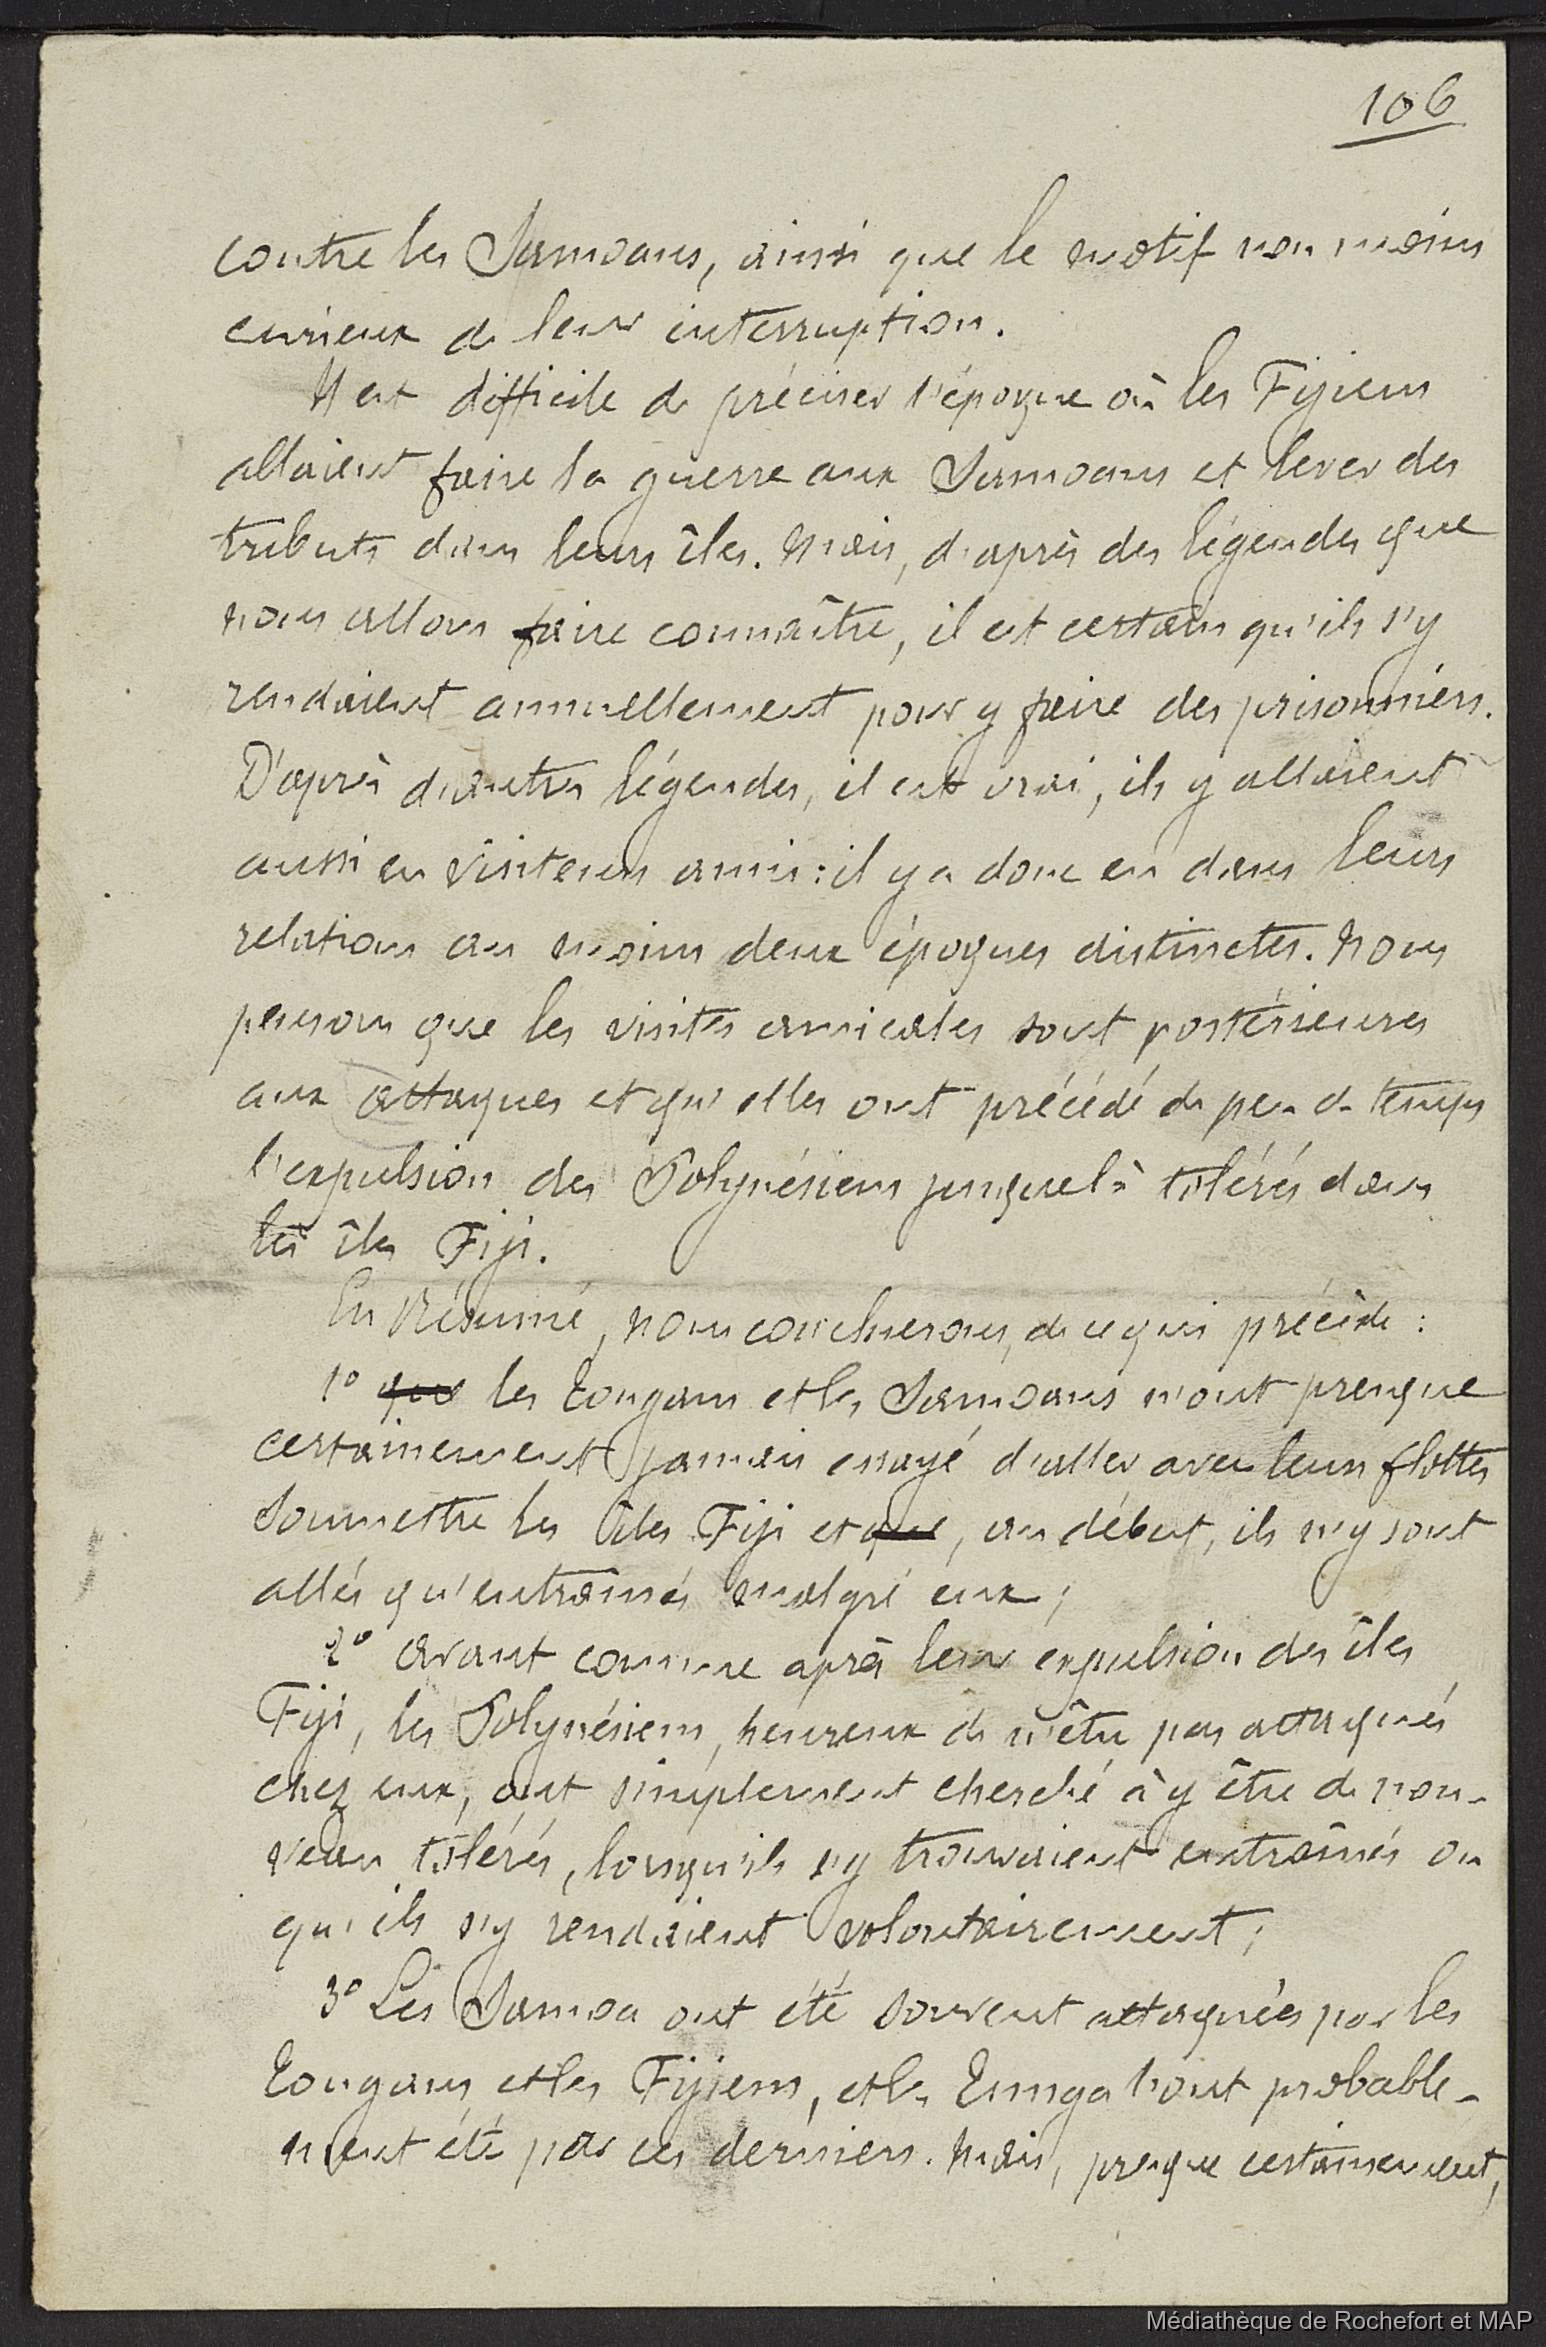 106
contre les Samoans, ainsi que le motif non moins
curieux de leur interruption.
Il est difficile de préciser l'époque où les Fijiens
allaient faire la guerre aux Samoans et lever des
tributs dans leurs îles. Mais, d'après des légendes que
nous allons faire connaître, il est certain qu'ils s'y
rendaient annuellement pour y faire des prisonniers.
D'après d'autres légendes, il est vrai, ils y allaient
aussi en visiteurs amis : il y a donc eu dans leurs
relations au moins deux époques distinctes. Nous
pensons que les visites amicales sont postérieures
aux attaques et qu'elles ont précédé de peu de temps
l'expulsion des Polynésiens jusque là tolérés dans
les îles Fiji.
En Résumé, nous conclurons, de ce qui précède :
1º que les Tongans et les Samoans n'ont presque
certainement jamais essayé d'aller avec leurs flottes
soumettre les îles Fiji et que, au début, ils n'y sont
allés qu'entraînés malgré eux ;
2º avant comme après leur expulsion des îles
Fiji, les Polynésiens, heureux de n'être pas attaqués
chez eux, ont simplement cherché à y être de nou-
veau tolérés, lorsqu'ils s'y trouvaient entraînés ou
qu'ils s'y rendaient volontairement ;
3º Les Samoa ont été souvent attaquées par les
Tongans et les Fijiens, et les Tunga l'ont probable-
ment été par ces derniers. Mais, presque certainement,
Médiathèque de Rochefort et MAP